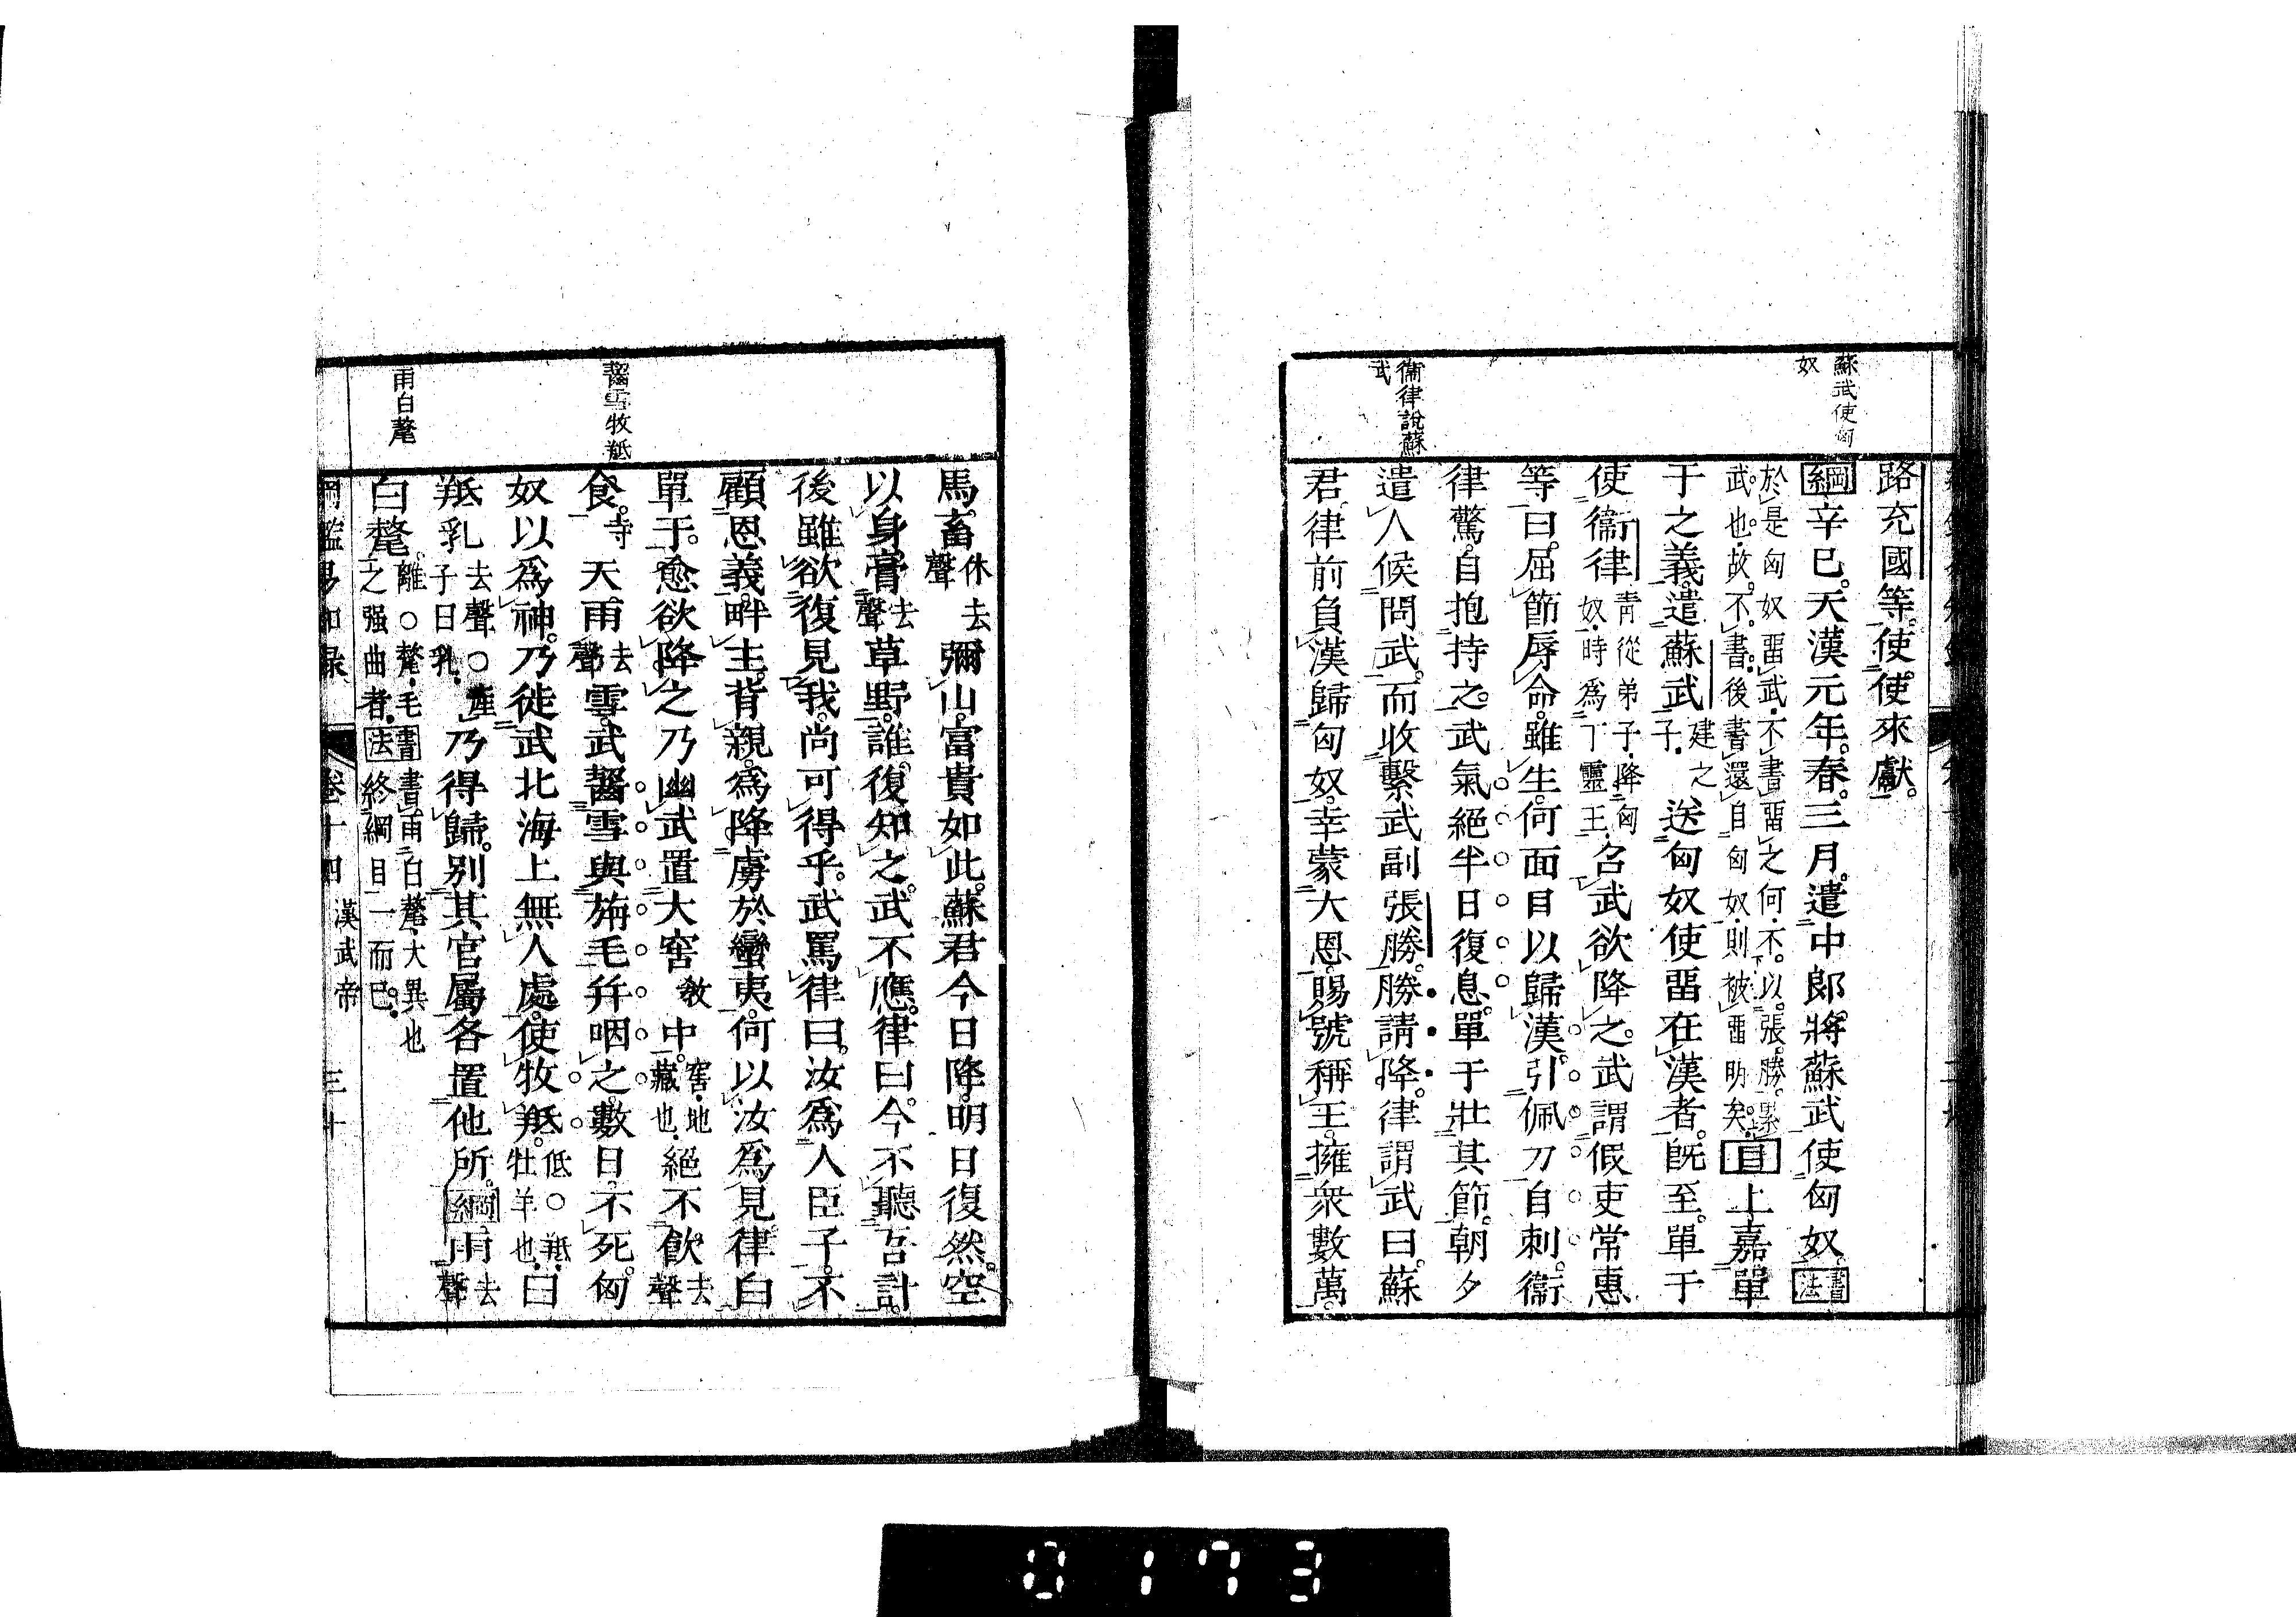 蘇武使匈
奴
衞律說蘇
武
路充國等使使來獻
綱辛巳天漢元年春三月遣中郎將蘇武使匈奴書法
於是匈奴畱武不書畱之何不以張勝累
武也故不書後書還自匈奴則被畱明矣目上嘉單
于之義遣蘇武建之子送匈奴使畱在漢者旣至單于
使衞律青從弟子降匈奴時爲丁靈王召武欲降之武謂假吏常惠
等曰屈節辱命雖生何面目以歸漢引佩刀自刺衞
律驚自抱持之武氣絕半日復息單于壯其節朝夕
遣人候問武而收繫武副張勝勝請降律謂武曰蘇
君律前負漢歸匈奴幸蒙大恩賜號稱王擁衆數萬
齧雪牧羝
雨白氂
馬畜休去聲彌山富貴如此蘇君今日降明日復然空
以身膏去聲草野誰復知之武不應律曰今不聽吾計
後雖欲復見我尚可得乎武罵律曰汝爲人臣子不
顧恩義畔主背親爲降虜於蠻夷何以汝爲見律白
單于愈欲降之乃幽武置大窖教中窖地藏也絕不飲去聲
食寺天雨去聲雪武齧雪與旃毛幷咽之數日不死匈
奴以爲神乃徙武北海上無人處使牧羝低○羝牡羊也曰
羝乳去聲○產子曰乳乃得歸別其官屬各置他所綱雨去聲
白氂離○氂毛之强曲者書法書雨白氂大異也終綱目一而已
綱鑑易知録 卷十四 漢武帝 三十
0173